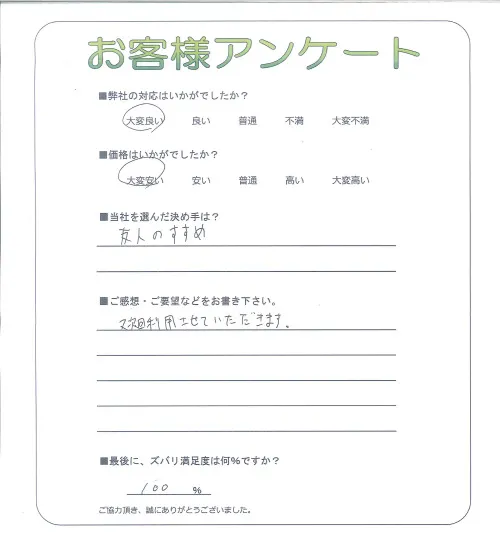 お客様アンケート
■弊社の対応はいかがでしたか？
大変良い 良い 普通 不満 大変不満
■価格はいかがでしたか？
大変安い 安い 普通 高い 大変高い
■当社を選んだ決め手は？
友人のすすめ
■ご感想・ご要望などをお書き下さい。
又次回利用させていただきます。
■最後に、ズバリ満足度は何％ですか？
100 ％
ご協力頂き、誠にありがとうございました。